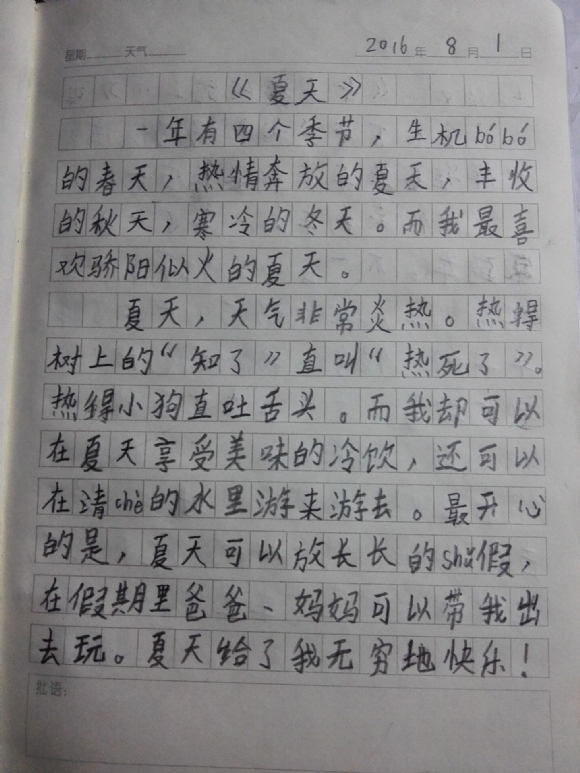 星期 天气 2016年8月1日
《夏天》
一年有四个季节，生机bóbó
的春天，热情奔放的夏天，丰收
的秋天，寒冷的冬天。而我最喜
欢骄阳似火的夏天。
夏天，天气非常炎热。热得
树上的“知了”直叫“热死了”。
热得小狗直吐舌头。而我却可以
在夏天享受美味的冷饮，还可以
在清chè的水里游来游去。最开心
的是，夏天可以放长长的shǔ假，
在假期里爸爸、妈妈可以带我出
去玩。夏天给了我无穷地快乐！
批语：